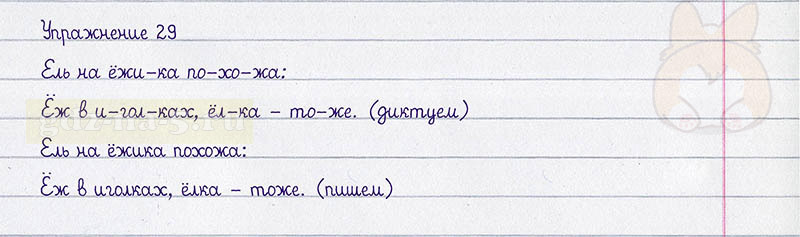 Упражнение 29
Ель на ёжи-ка по-хо-жа:
Ёж в и-гол-ках, ёл-ка - то-же. (диктуем)
gdz-na-5.ru
Ель на ёжика похожа:
Ёж в иголках, ёлка - тоже. (пишем)